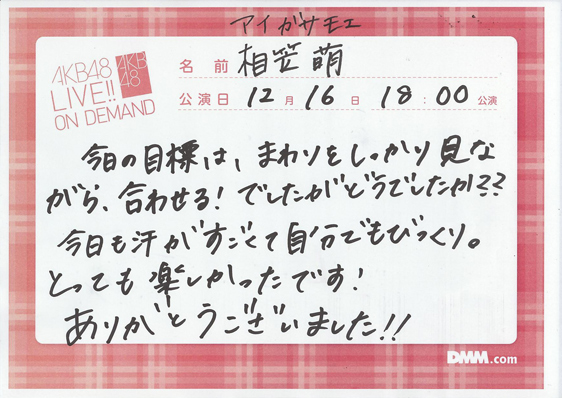 アイガサモエ
AKB48
LIVE!!
ON DEMAND
AKB
48
名前 相笠 萌
公演日 12月16日 18:00公演
今日の目標は、まわりをしっかり見な
がら、合わせる！でしたがどうでしたか??
今日も汗がすごくて自分でもびっくり。
とっても楽しかったです！
ありがとうございました!!
DMM.com